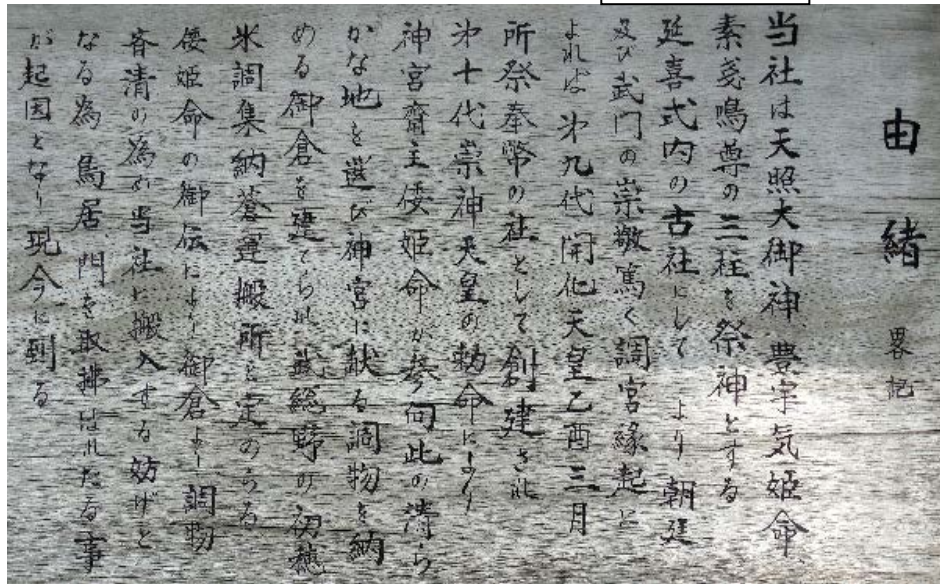 由緒 畧記
当社は天照大御神 豊宇気姫命
素戔嗚尊の三柱を祭神とする
延喜式内の古社にして より朝廷
及び武門の崇敬篤く調宮縁起に
よれば 第九代開化天皇乙酉三月
所祭奉幣の社として創建され
第十代崇神天皇の勅命により
神宮齋主倭姫命が参向此の清ら
かな地を選び神宮に献る調物を納
める御倉を建てられ武総野の初穂
米調集納蒼運搬所と定めらる
倭姫命の御伝により御倉より調物
斉清の為め当社に搬入する妨げと
なる為 鳥居 門を取拂はれたる事
が起因となり現今に到る